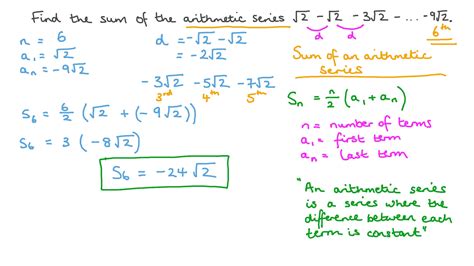 Find the sum of the arithmetic series √2 - √2 - 3√2 - .... -9√2.
d d
6th
n = 6
a₁ = √2
aₙ = -9√2
d = -√2 - √2
= -2√2
- 3√2 - 5√2 - 7√2
3rd 4th 5th
S₆ = 6/2 (√2 + (-9√2))
S₆ = 3 (-8√2)
S₆ = -24√2
Sum of an arithmetic
series
Sₙ = n/2 (a₁ + aₙ)
n = number of terms
a₁ = first term
aₙ = last term
"An arithmetic series
is a series where the
difference between each
term is constant"